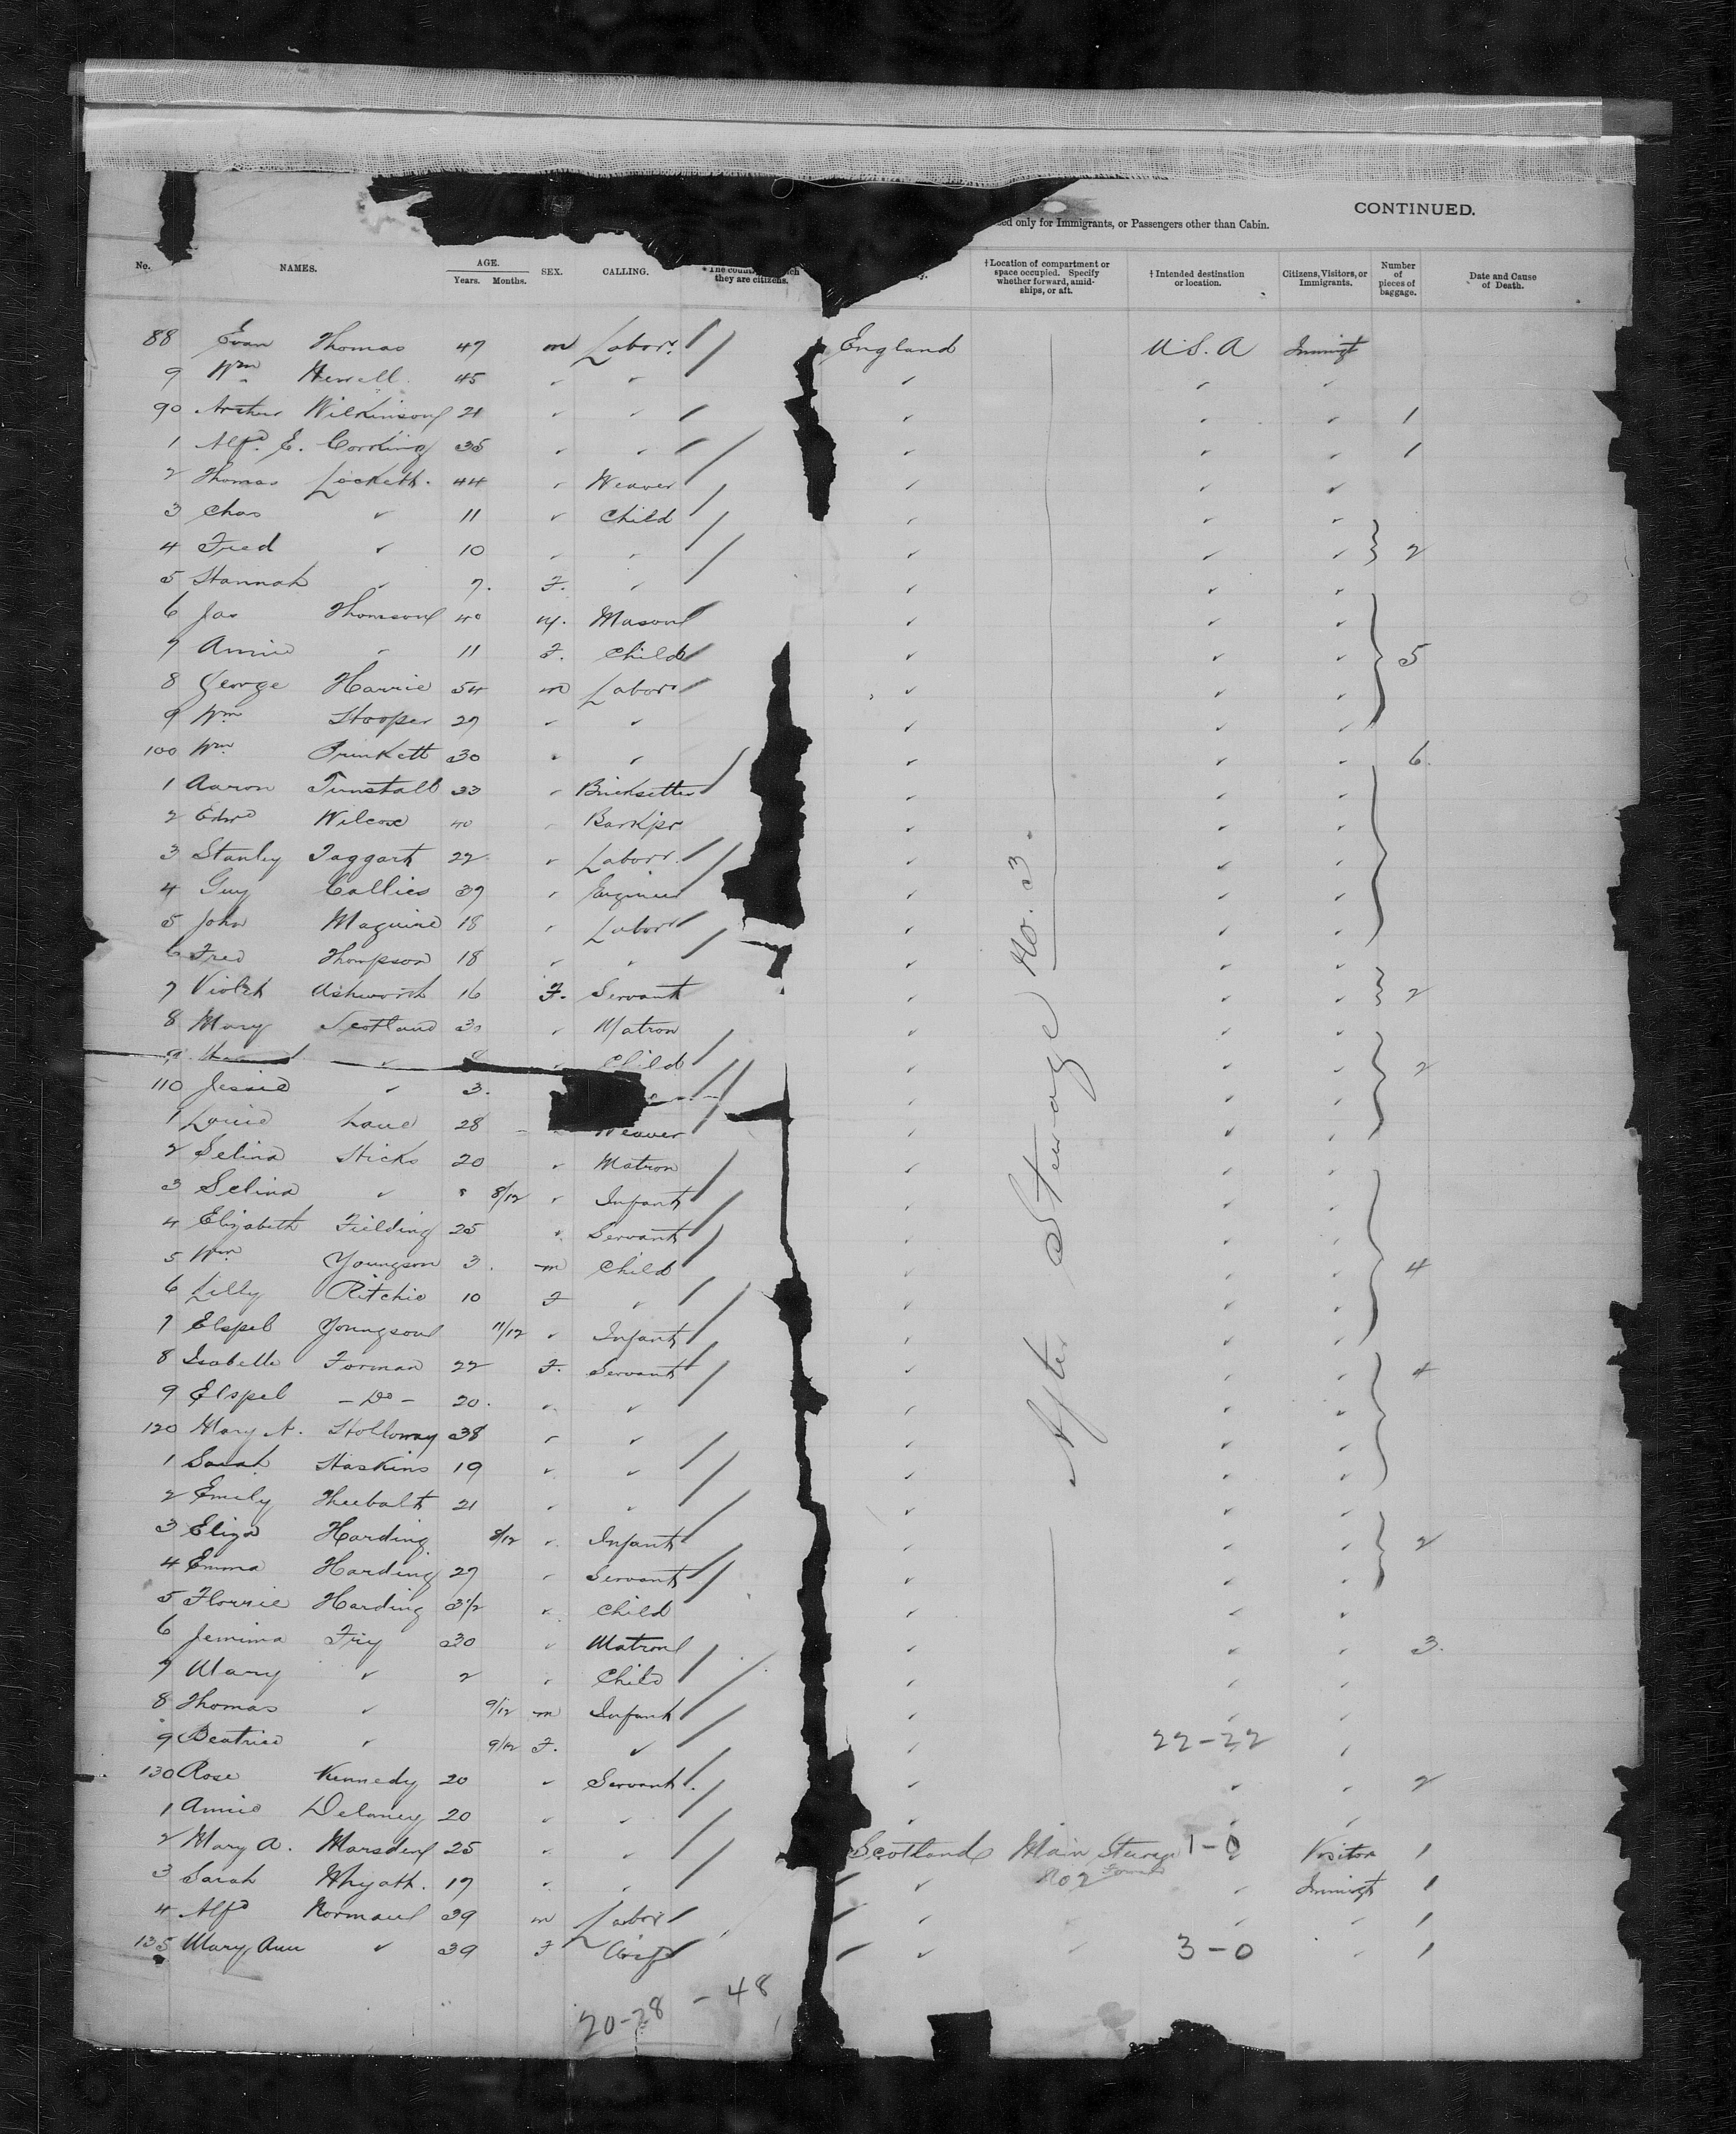 CONTINUED.
only for Immigrants, or Passengers other than Cabin.
No. NAMES. AGE. Years. Months. SEX. CALLING. they are citizens. †Location of compartment or space occupied. Specify whether forward, amidships, or aft. †Intended destination or location. Citizens, Visitors, or Immigrants. Number of pieces of baggage. Date and Cause of Death.
88 Evan Thomas 47 m Labor. England U.S.A Immigt
9 Wm 45 " " " " "
90 Arthur Wilkinson 21 " " " " " 1
1 Alfd. E. Corking 35 " " " " " 1
2 Thomas Lockett. 44 " Weaver " " "
3 Chas " 11 " Child " " "
4 Fred " 10 " " " " " 2
5 Hannah " 7. F. " " " "
6 Jas Thomson 40 M. Mason " " "
7 Annie " 11 F. Child " " " 5
8 George Harrie 54 m Labor " " "
9 Wm Hooper 27 " " " " "
100 Wm Prinkett 30 " " " " " 6
1 Aaron Tunstall 33 " Bricksetter " " "
2 Edwd Wilcox 40 " Barkpr " " "
3 Stanley Taggart 22 " Labor. " " "
4 Guy Callies 37 " Engineer " " "
5 John Maguire 18 " Labor " " "
6 Fred Thompson 18 " " " " "
7 Violet Ashworth 16 F. Servant " " " 2
8 Mary Scotland 30 " Matron " " "
9 " Child " " " 2
110 Jessie " 3. " " "
1 Louie Lane 28 Weaver " " "
2 Selina Hicks 20 " Matron " " "
3 Selina " 8/12 " Infant " " "
4 Elizabeth Fielding 25 " Servant " " "
5 Wm Youngson 3. m Child " " " 4
6 Lilly Ritchie 10 F " " " "
7 Elspet Youngson 11/12 " Infant " " "
8 Isabella Forman 22 F. Servant " " " 4
9 Elspet - Do - 20. " " " " "
120 Mary A. Holloway 38 " " " " "
1 Sarah Haskins 19 " " " " "
2 Emily Theebalt 21 " " " " "
3 Eliza Harding 8/12 " Infant " " " 2
4 Emma Harding 27 " Servant " " "
5 Florrie Harding 3 1/2 " Child " " "
6 Jemima Fry 30 " Matron " " " 3.
7 Mary " 2 " Child " " "
8 Thomas " 9/12 m Infant " " "
9 Beatrice " 9/12 F. " " 22-22 "
130 Rose Kennedy 20 " Servant. " " " 2
1 Annie Delaney 20 " " " " "
2 Mary A. Marsden 25 " " Scotland Main Steerage 1-0 Visitor 1
3 Sarah Whyatt. 17 " " " No 2 Forward " Immigt 1
4 Alfd Norman 39 m Labor " " " 1
135 Mary Ann " 39 F Wife " " 3-0 " 1
After Steerage No. 3.
20-28 - 48